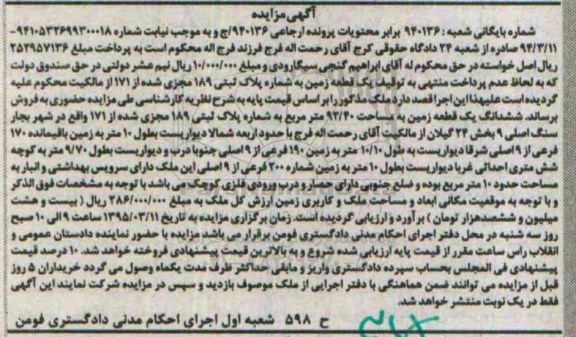 آگهی مزایده
شماره بایگانی شعبه: ۹۴۰۱۳۶ برابر محتویات پرونده ارجاعی ۹۴۰۱۳۶/ج و به موجب نیابت شماره ۹۴۱۰۵۳۲۶۹۹۳۰۰۰۱۸-
۹۴/۳/۱۱ صادره از شعبه ۲۴ دادگاه حقوقی کرج آقای رحمت اله فرج فرزند فرج اله محکوم است به پرداخت مبلغ ۲۵۲۹۵۷۱۳۶
ریال اصل خواسته در حق محکوم له آقای ابراهیم گنجی سیگارودی و مبلغ ۱۰/۰۰۰/۰۰۰ ریال نیم عشر دولتی در حق صندوق دولت
که به لحاظ عدم پرداخت منتهی به توقیف یک قطعه زمین به شماره پلاک ثبتی ۱۸۹ مجزی شده از ۱۷۱ از مالکیت محکوم علیه
گردیده است علیهذا این اجرا قصد دارد ملک مذکور را بر اساس قیمت پایه به شرح نظریه کارشناسی طی مزایده حضوری به فروش
برساند. ششدانگ یک قطعه زمین به مساحت ۹۲/۴۰ متر مربع به شماره پلاک ثبتی ۱۸۹ مجزی شده از ۱۷۱ واقع در شهر بجار
سنگ اصلی ۹ بخش ۲۴ گیلان از مالکیت آقای رحمت اله فرج با حدود اربعه شمالا دیواریست بطول ۱۰ متر به زمین باقیمانده ۱۷۰
فرعی از ۹ اصلی شرقا دیواریست به طول ۱۰/۱۰ متر به زمین ۱۹۰ فرعی از ۹ اصلی جنوبا درب و دیواریست بطول ۹/۷۰ متر به کوچه
شش متری احداثی غربا دیواریست بطول ۱۰ متر به زمین شماره ۳۰۰ فرعی از ۹ اصلی این ملک دارای سرویس بهداشتی و انبار به
مساحت حدود ۱۰ متر مربع بوده و ضلع جنوبی دارای حصار و درب ورودی فلزی کوچک می باشد با توجه به مشخصات فوق الذکر
و با توجه به موقعیت مکانی ابعاد و مساحت ملک و کاربری زمین ارزش کل ملک به مبلغ ۲۸۶/۰۰۰/۰۰۰ ریال ( بیست و هشت
میلیون و ششصدهزار تومان ) برآورد و ارزیابی گردیده است. زمان برگزاری مزایده به تاریخ ۱۳۹۵/۰۳/۱۱ ساعت ۹ الی ۱۰ صبح
روز سه شنبه در محل دفتر اجرای احکام مدنی دادگستری فومن برقرار می باشد مزایده با حضور نماینده دادستان عمومی و
انقلاب راس ساعت مقرر از قیمت پایه ارزیابی شده شروع و به بالاترین قیمت پیشنهادی فروخته خواهد شد. ۱۰ درصد قیمت
پیشنهادی فی المجلس بحساب سپرده دادگستری واریز و مابقی حداکثر ظرف مدت یکماه وصول می گردد خریداران ۵ روز
قبل از مزایده می توانند ضمن هماهنگی با دفتر اجرایی از ملک موصوف بازدید و سپس در مزایده شرکت نمایند این آگهی
فقط در یک نوبت منتشر خواهد شد.
ح ۵۹۸ شعبه اول اجرای احکام مدنی دادگستری فومن